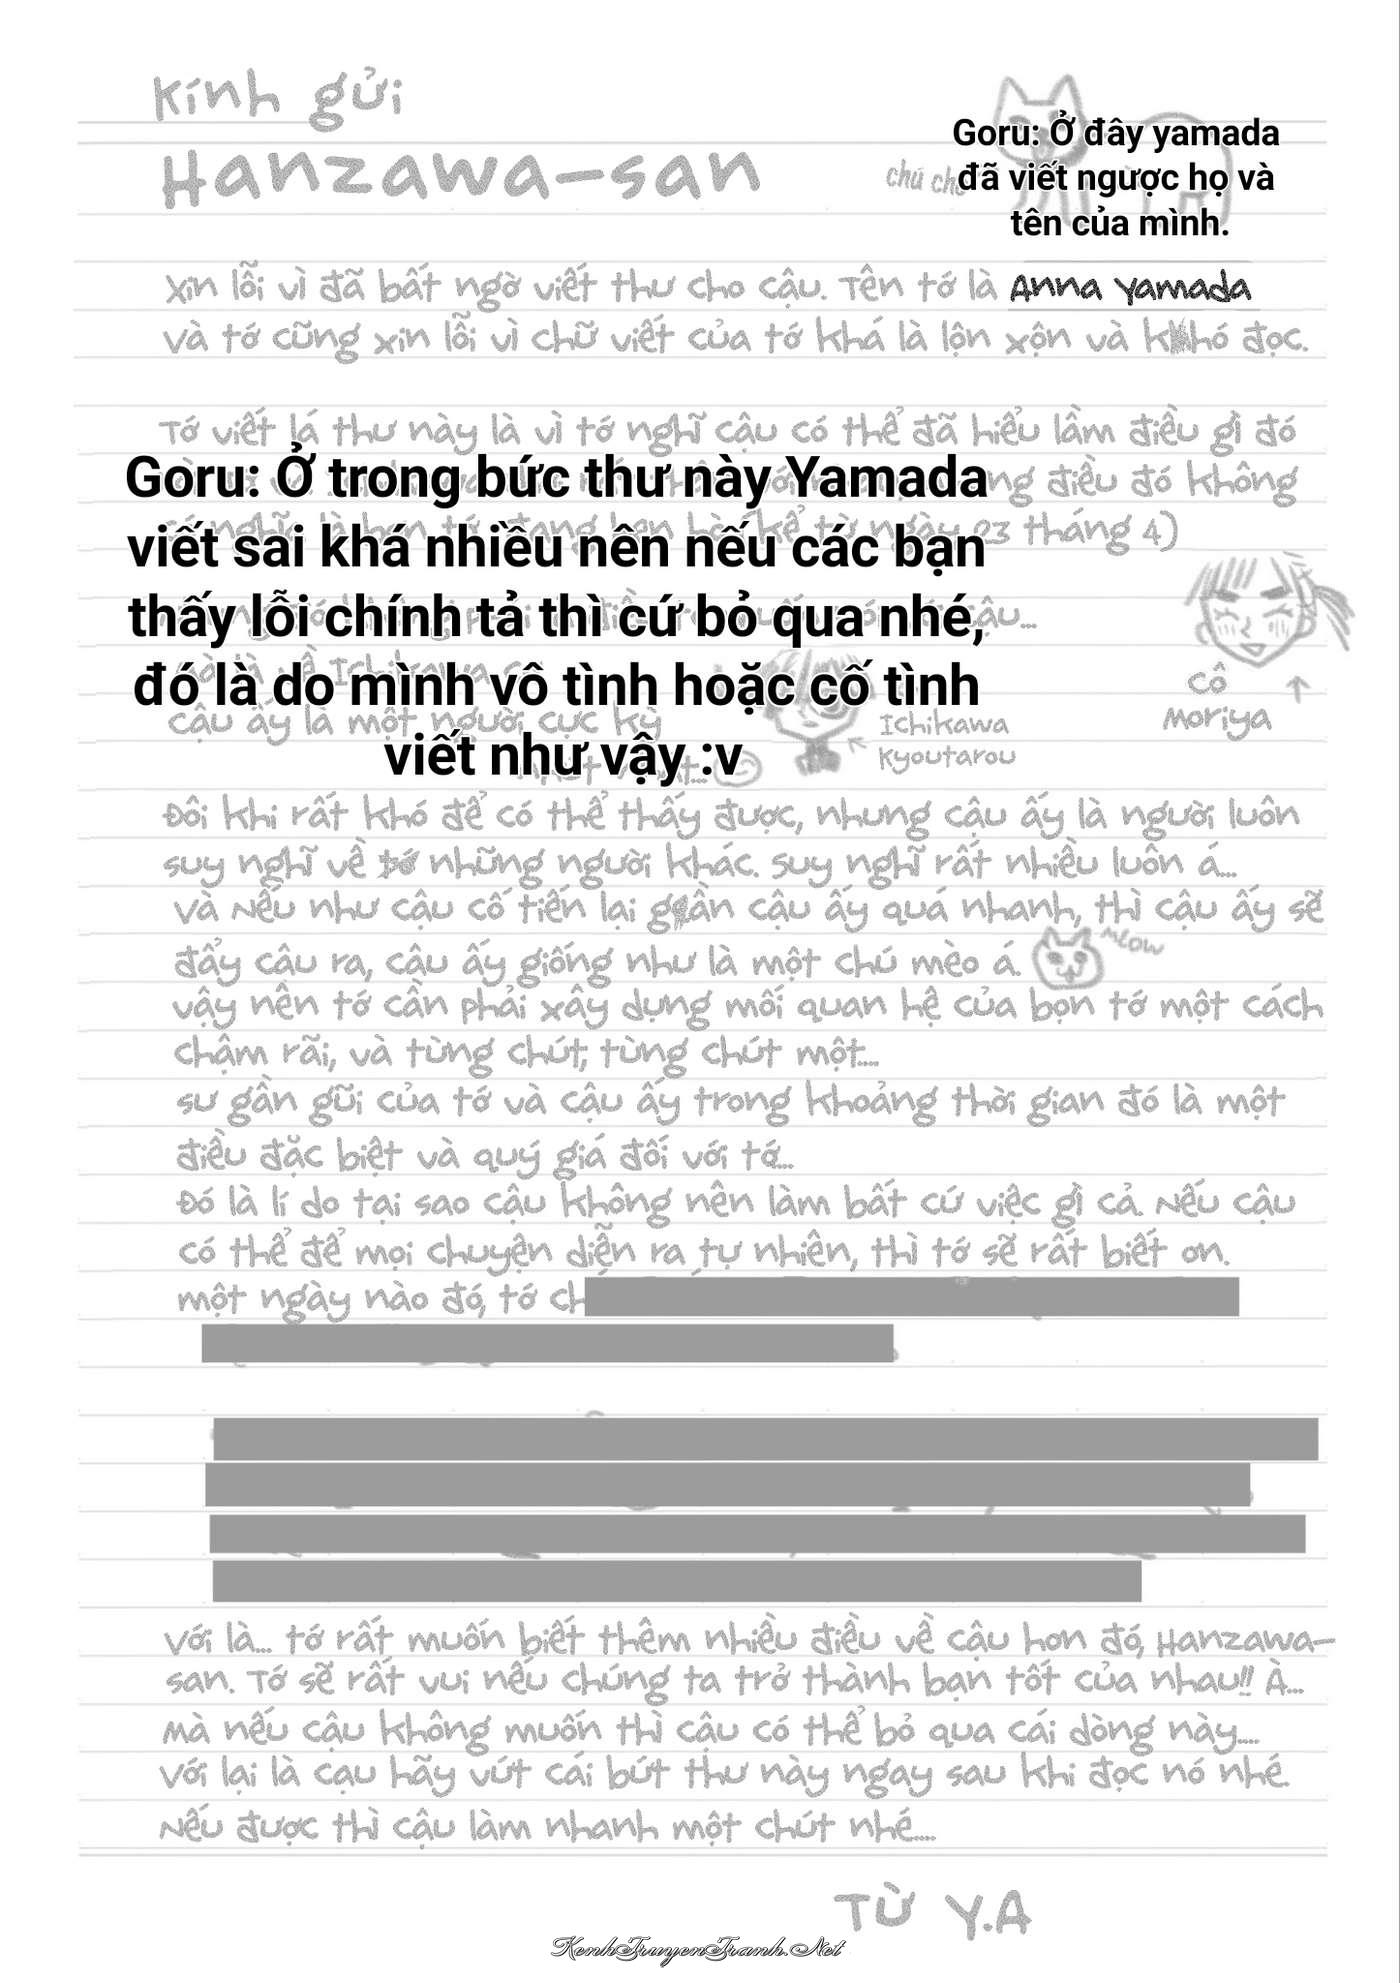 Kính gửi
Hanzawa-san
chú chó
Goru: Ở đây yamada
đã viết ngược họ và
tên của mình.
Xin lỗi vì đã bất ngờ viết thư cho cậu. Tên tớ là Anna Yamada
Và tớ cũng xin lỗi vì chữ viết của tớ khá là lộn xộn và khó đọc.
Tớ viết lá thư này là vì tớ nghĩ cậu có thể đã hiểu lầm điều gì đó
điều đó không
kể từ ngày 23 tháng 4)
Goru: Ở trong bức thư này Yamada
viết sai khá nhiều nên nếu các bạn
thấy lỗi chính tả thì cứ bỏ qua nhé,
đó là do mình vô tình hoặc cố tình
viết như vậy :v
cậu...
cậu ấy là một người cực kỳ
Ichikawa
Kyoutarou
Cô
Moriya
Đôi khi rất khó để có thể thấy được, nhưng cậu ấy là người luôn
suy nghĩ về những người khác. Suy nghĩ rất nhiều luôn á...
Và Nếu như cậu cố tiến lại gần cậu ấy quá nhanh, thì cậu ấy sẽ
đẩy câu ra, câu ấy giống như là một chú mèo á.
meow
vậy nên tớ cần phải xây dựng mối quan hệ của bọn tớ một cách
chậm rãi, và từng chút, từng chút một...
sư gần gũi của tớ và cậu ấy trong khoảng thời gian đó là một
điều đặc biệt và quý giá đối với tớ...
Đó là lí do tại sao cậu không nên làm bất cứ việc gì cả. Nếu cậu
có thể để mọi chuyện diễn ra tự nhiên, thì tớ sẽ rất biết ơn.
một ngày nào đó, tớ ch
Với là... tớ rất muốn biết thêm nhiều điều về cậu hơn đó, Hanzawa-
san. Tớ sẽ rất vui nếu chúng ta trở thành bạn tốt của nhau!! À...
Mà nếu cậu không muốn thì cậu có thể bỏ qua cái dòng này....
Với lại là cạu hãy vứt cái bứt thư này ngay sau khi đọc nó nhé.
Nếu được thì cậu làm nhanh một chút nhé....
Từ Y.A
KenhTruyenTranh.Net